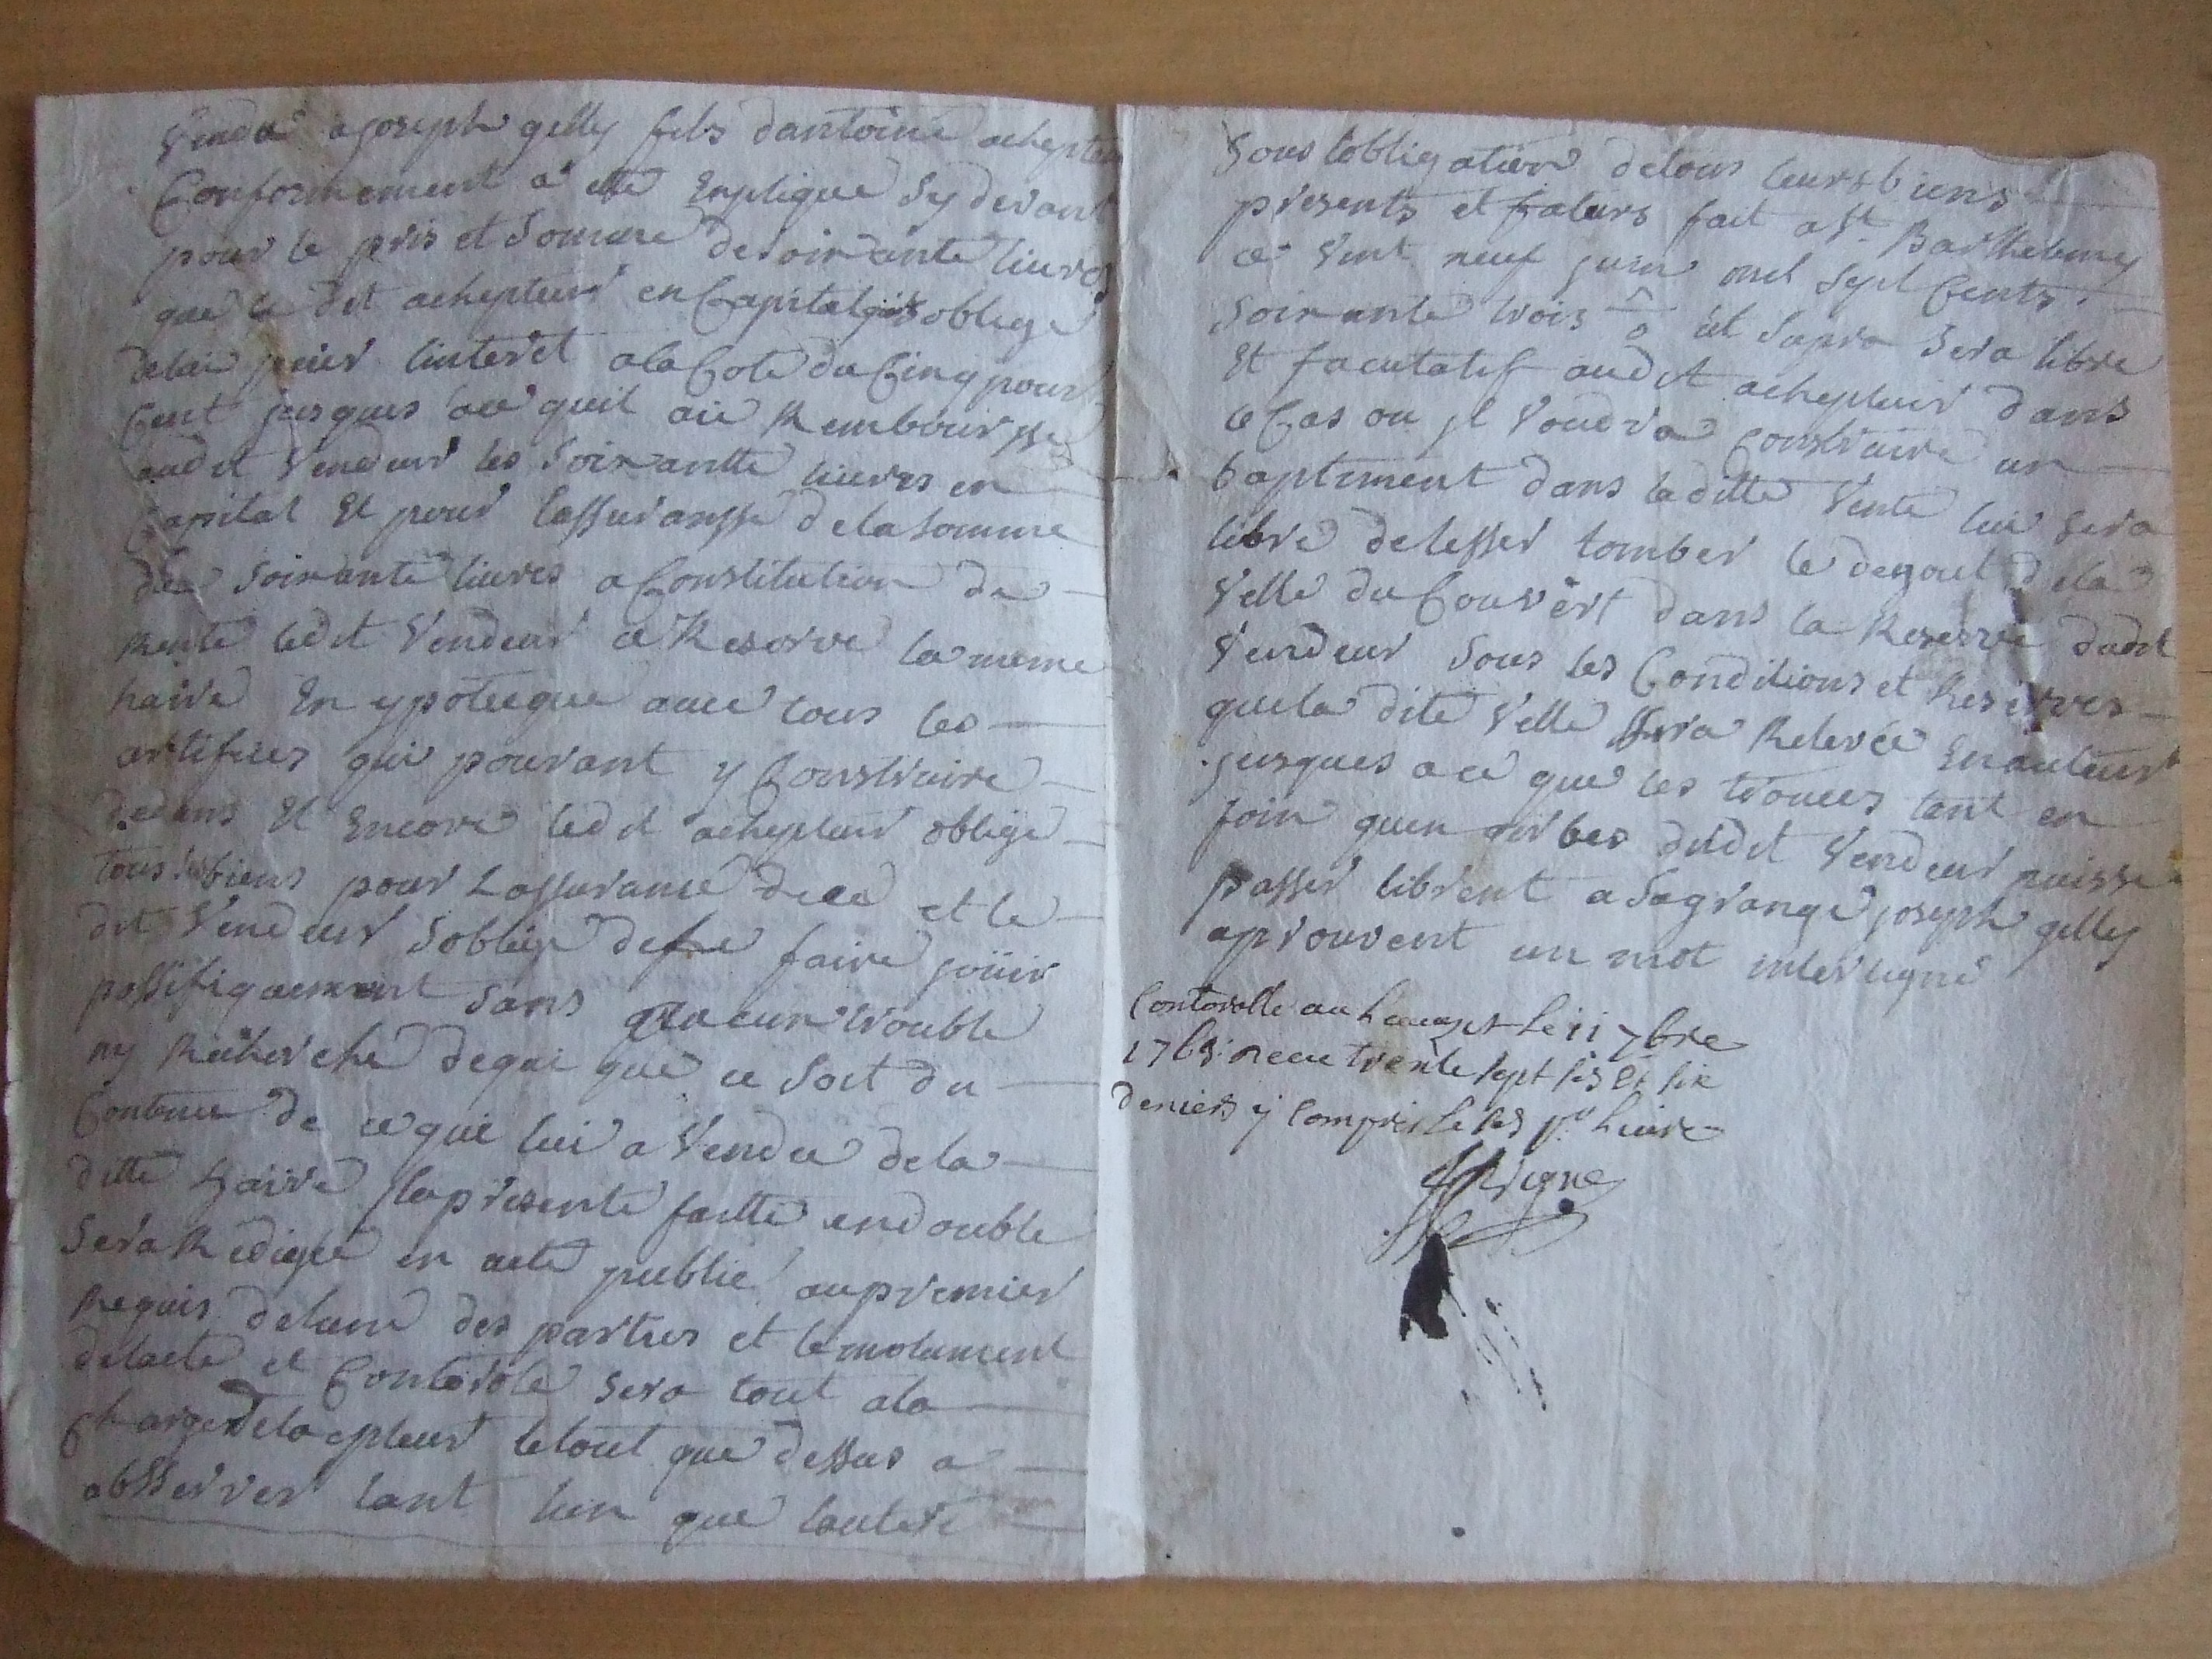 Vendu a joseph gelly fils dantoine achepteur
Conformement a eté Enpliqué Sy devant
pour le pris et Somme de soixante livres
que le dit achepteur en Capital oblige
de lui paier linteret a la Cote du Cinq pour
Cent jusques a ce quil aie Rembourssé
audit Vendeur les Soixantte livres en
Capital Et pour lassuransse de la somme
de Soixante livres a Constitution de
Rente ledit Vendeur ce Reserve la meme
haire En ypoteque avec tous les
artifices qui pouvant y Construire
dedans Et Encore ledit achepteur oblige
tous ses biens pour Lassurance de ce et le
dit Vendeur Soblige de faire joüir
possifiquement sans aucun trouble
ny Recherche de qui que ce soit du
Contenu de ce qui lui a Vendu de la
ditte haire la presente faitte en double
Sera Redigée en acte public au premier
Requis de lune des parties et lemolument
de lacte et Controle sera tout a la
Charge de lacpteur le tout que dessus a
absserver tant lun que lautere
Sous lobligation de tous leurs biens
presents et faturs fait a St Barthelemy
ce Vint neuf juin mil Sept Cents
Soixante trois et supra Sera libre
Et facutatif audit achepteur dans
le Cas ou jl Voudra Construire un
baptiment dans la ditte Vente lui sera
libre de lesser tomber le degout de la
Velle du Couvert dans la Reserve dudit
Vendeur Sous les Conditions et Reserves
que la dite Velle sera Relevée En auteur
jusques a ce que les trouces tant en
foin quen girbes dudit Vendeur puisse
passer librent a sa grange joseph gelly
aprouvent un mot interligne
Contorollé au le 11 7bre
1763 receu trente sept sols Et six
deniers y compris les sols pr livre